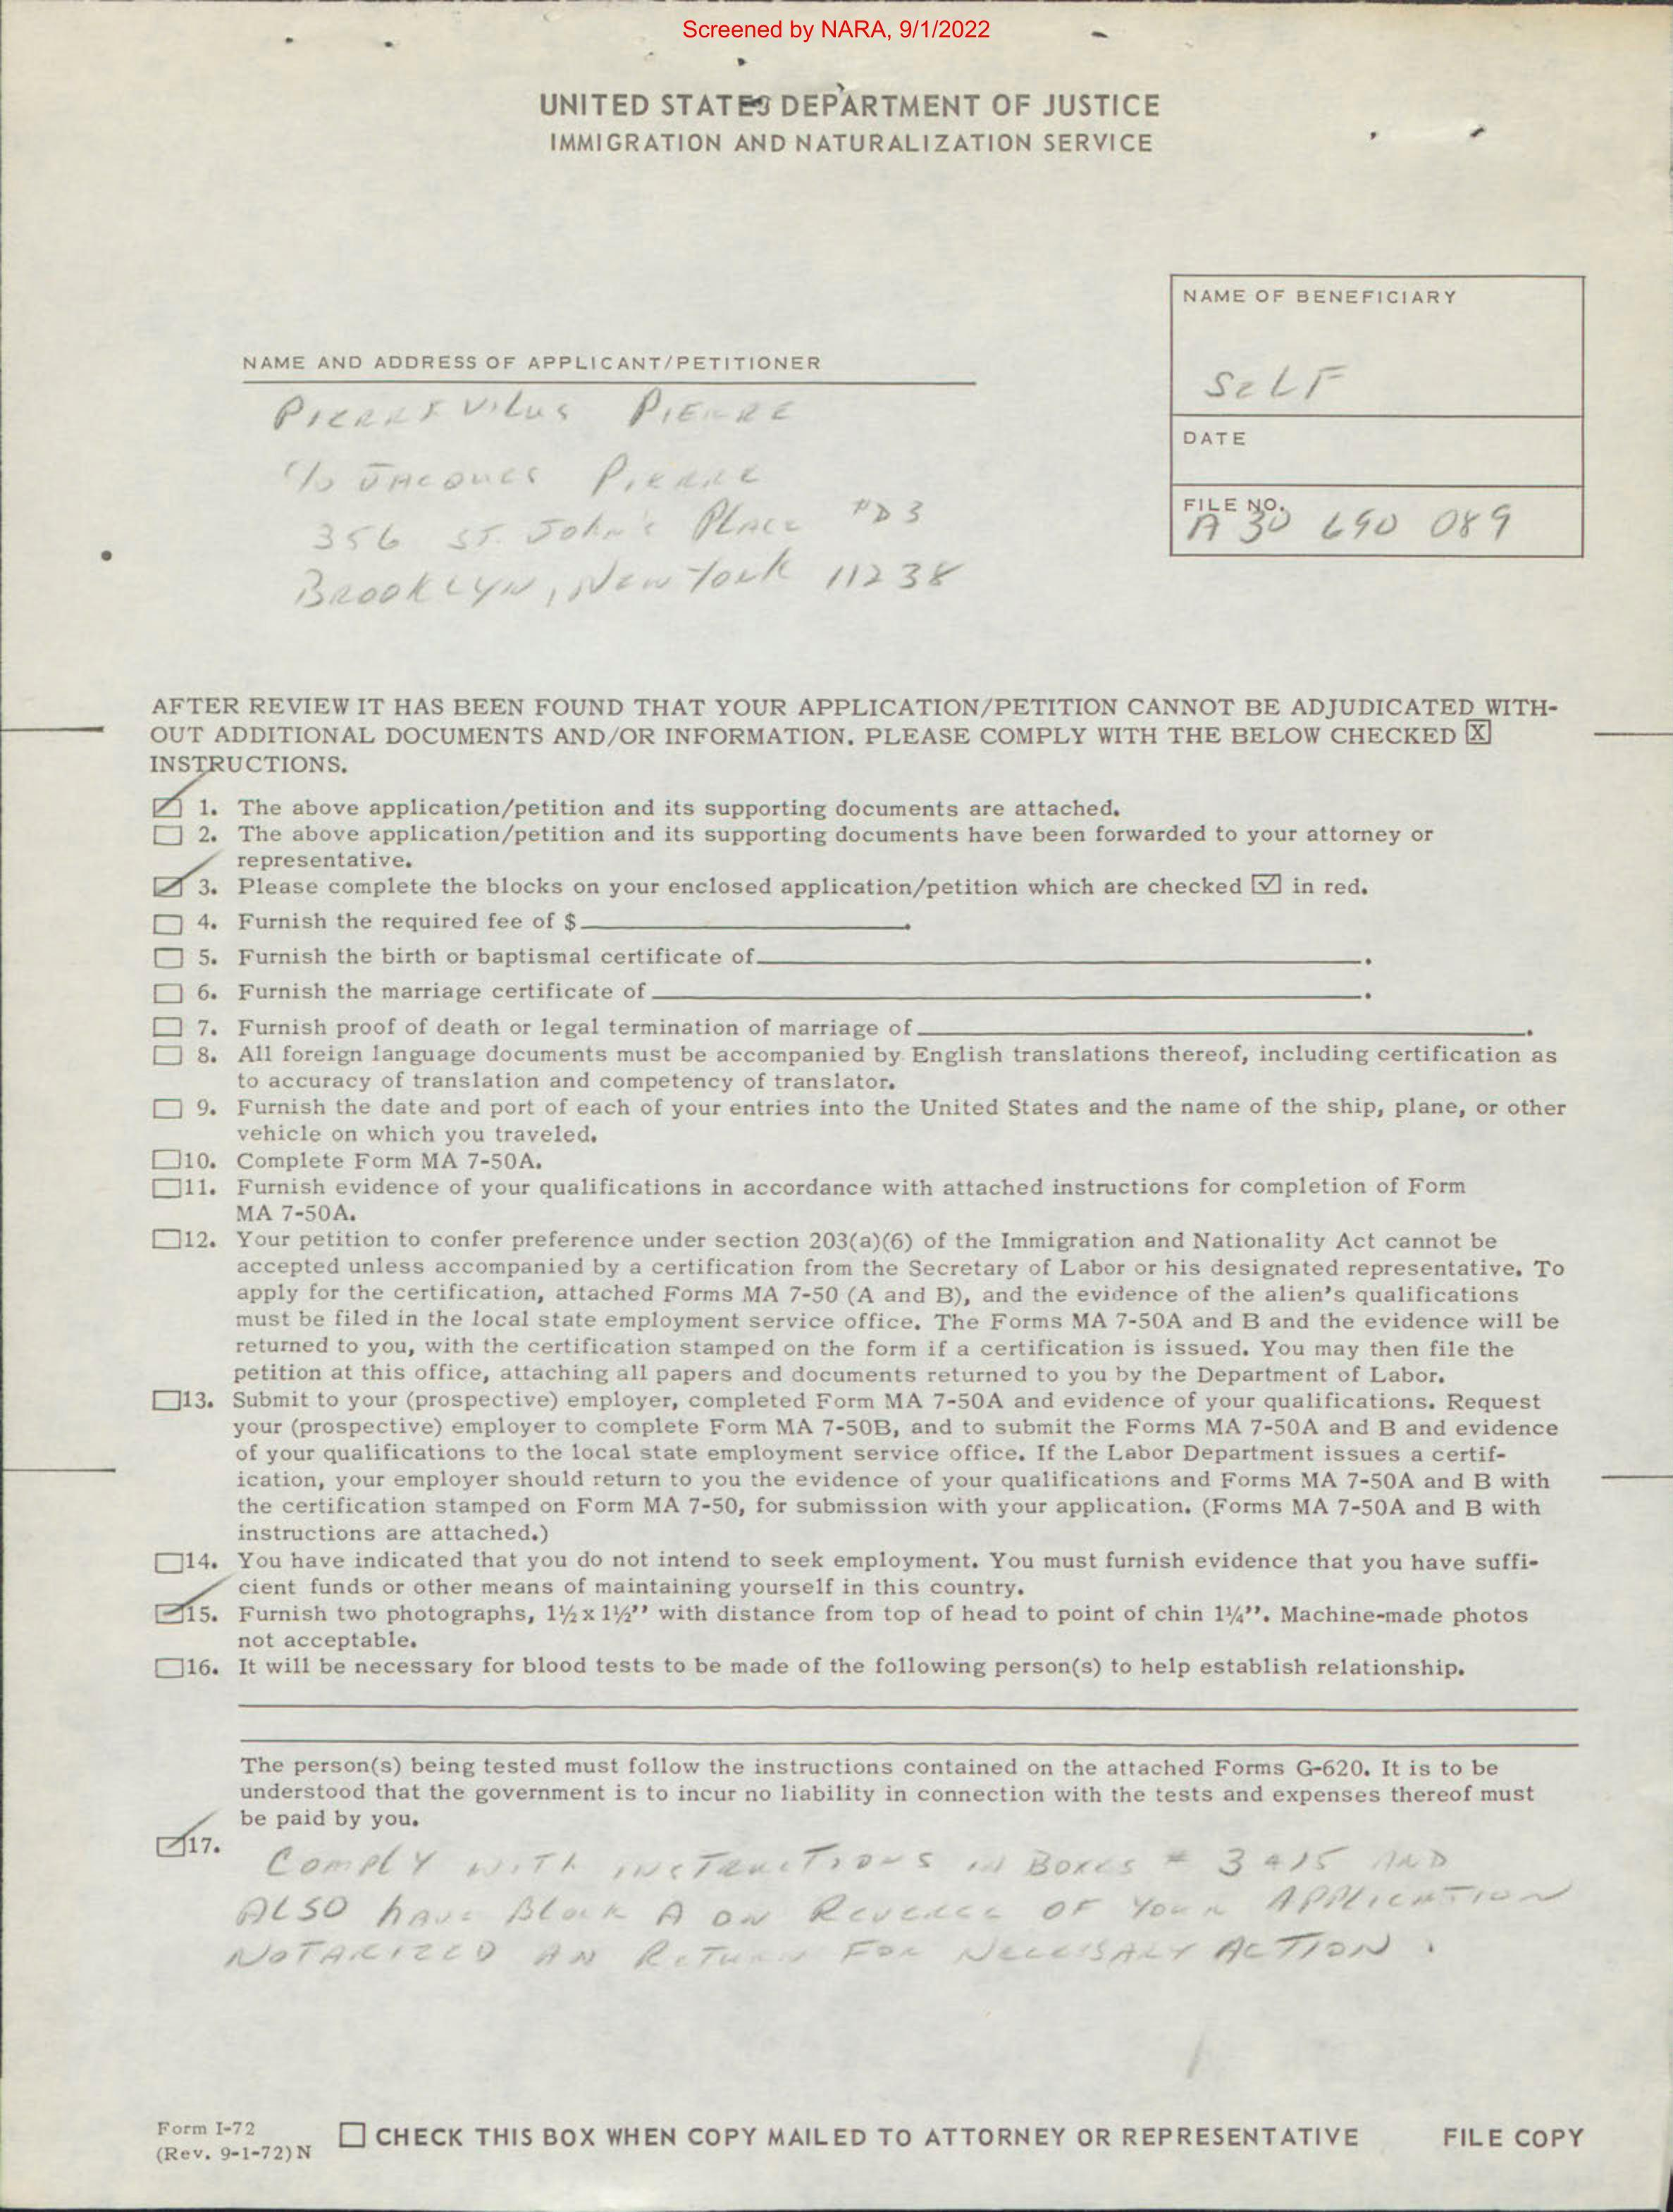 Screened by NARA, 9/1/2022
UNITED STATES DEPARTMENT OF JUSTICE
IMMIGRATION AND NATURALIZATION SERVICE
NAME OF BENEFICIARY
SELF
NAME AND ADDRESS OF APPLICANT/PETITIONER
PIERREVILUS PIERRE
DATE
c/o JACQUES PIERRE
FILE NO.
A 30 690 089
356 ST. John's PLACE #D3
BROOKLYN, New York 11238
AFTER REVIEW IT HAS BEEN FOUND THAT YOUR APPLICATION/PETITION CANNOT BE ADJUDICATED WITH-
OUT ADDITIONAL DOCUMENTS AND/OR INFORMATION. PLEASE COMPLY WITH THE BELOW CHECKED X
INSTRUCTIONS.
1. The above application/petition and its supporting documents are attached.
2. The above application/petition and its supporting documents have been forwarded to your attorney or
representative.
3. Please complete the blocks on your enclosed application/petition which are checked ✓ in red.
4. Furnish the required fee of $ .
5. Furnish the birth or baptismal certificate of .
6. Furnish the marriage certificate of .
7. Furnish proof of death or legal termination of marriage of .
8. All foreign language documents must be accompanied by English translations thereof, including certification as
to accuracy of translation and competency of translator.
9. Furnish the date and port of each of your entries into the United States and the name of the ship, plane, or other
vehicle on which you traveled.
10. Complete Form MA 7-50A.
11. Furnish evidence of your qualifications in accordance with attached instructions for completion of Form
MA 7-50A.
12. Your petition to confer preference under section 203(a)(6) of the Immigration and Nationality Act cannot be
accepted unless accompanied by a certification from the Secretary of Labor or his designated representative. To
apply for the certification, attached Forms MA 7-50 (A and B), and the evidence of the alien's qualifications
must be filed in the local state employment service office. The Forms MA 7-50A and B and the evidence will be
returned to you, with the certification stamped on the form if a certification is issued. You may then file the
petition at this office, attaching all papers and documents returned to you by the Department of Labor.
13. Submit to your (prospective) employer, completed Form MA 7-50A and evidence of your qualifications. Request
your (prospective) employer to complete Form MA 7-50B, and to submit the Forms MA 7-50A and B and evidence
of your qualifications to the local state employment service office. If the Labor Department issues a certif-
ication, your employer should return to you the evidence of your qualifications and Forms MA 7-50A and B with
the certification stamped on Form MA 7-50, for submission with your application. (Forms MA 7-50A and B with
instructions are attached.)
14. You have indicated that you do not intend to seek employment. You must furnish evidence that you have suffi-
cient funds or other means of maintaining yourself in this country.
15. Furnish two photographs, 1½ x 1½'' with distance from top of head to point of chin 1¼''. Machine-made photos
not acceptable.
16. It will be necessary for blood tests to be made of the following person(s) to help establish relationship.
The person(s) being tested must follow the instructions contained on the attached Forms G-620. It is to be
understood that the government is to incur no liability in connection with the tests and expenses thereof must
be paid by you.
17. COMPLY WITH INSTRUCTIONS IN BOXES # 3 + 15 AND
ALSO have Block A ON Reverse OF YOUR APPLICATION
NOTARIZED AN RETURN FOR NECESSARY ACTION.
Form I-72
(Rev. 9-1-72) N
CHECK THIS BOX WHEN COPY MAILED TO ATTORNEY OR REPRESENTATIVE
FILE COPY